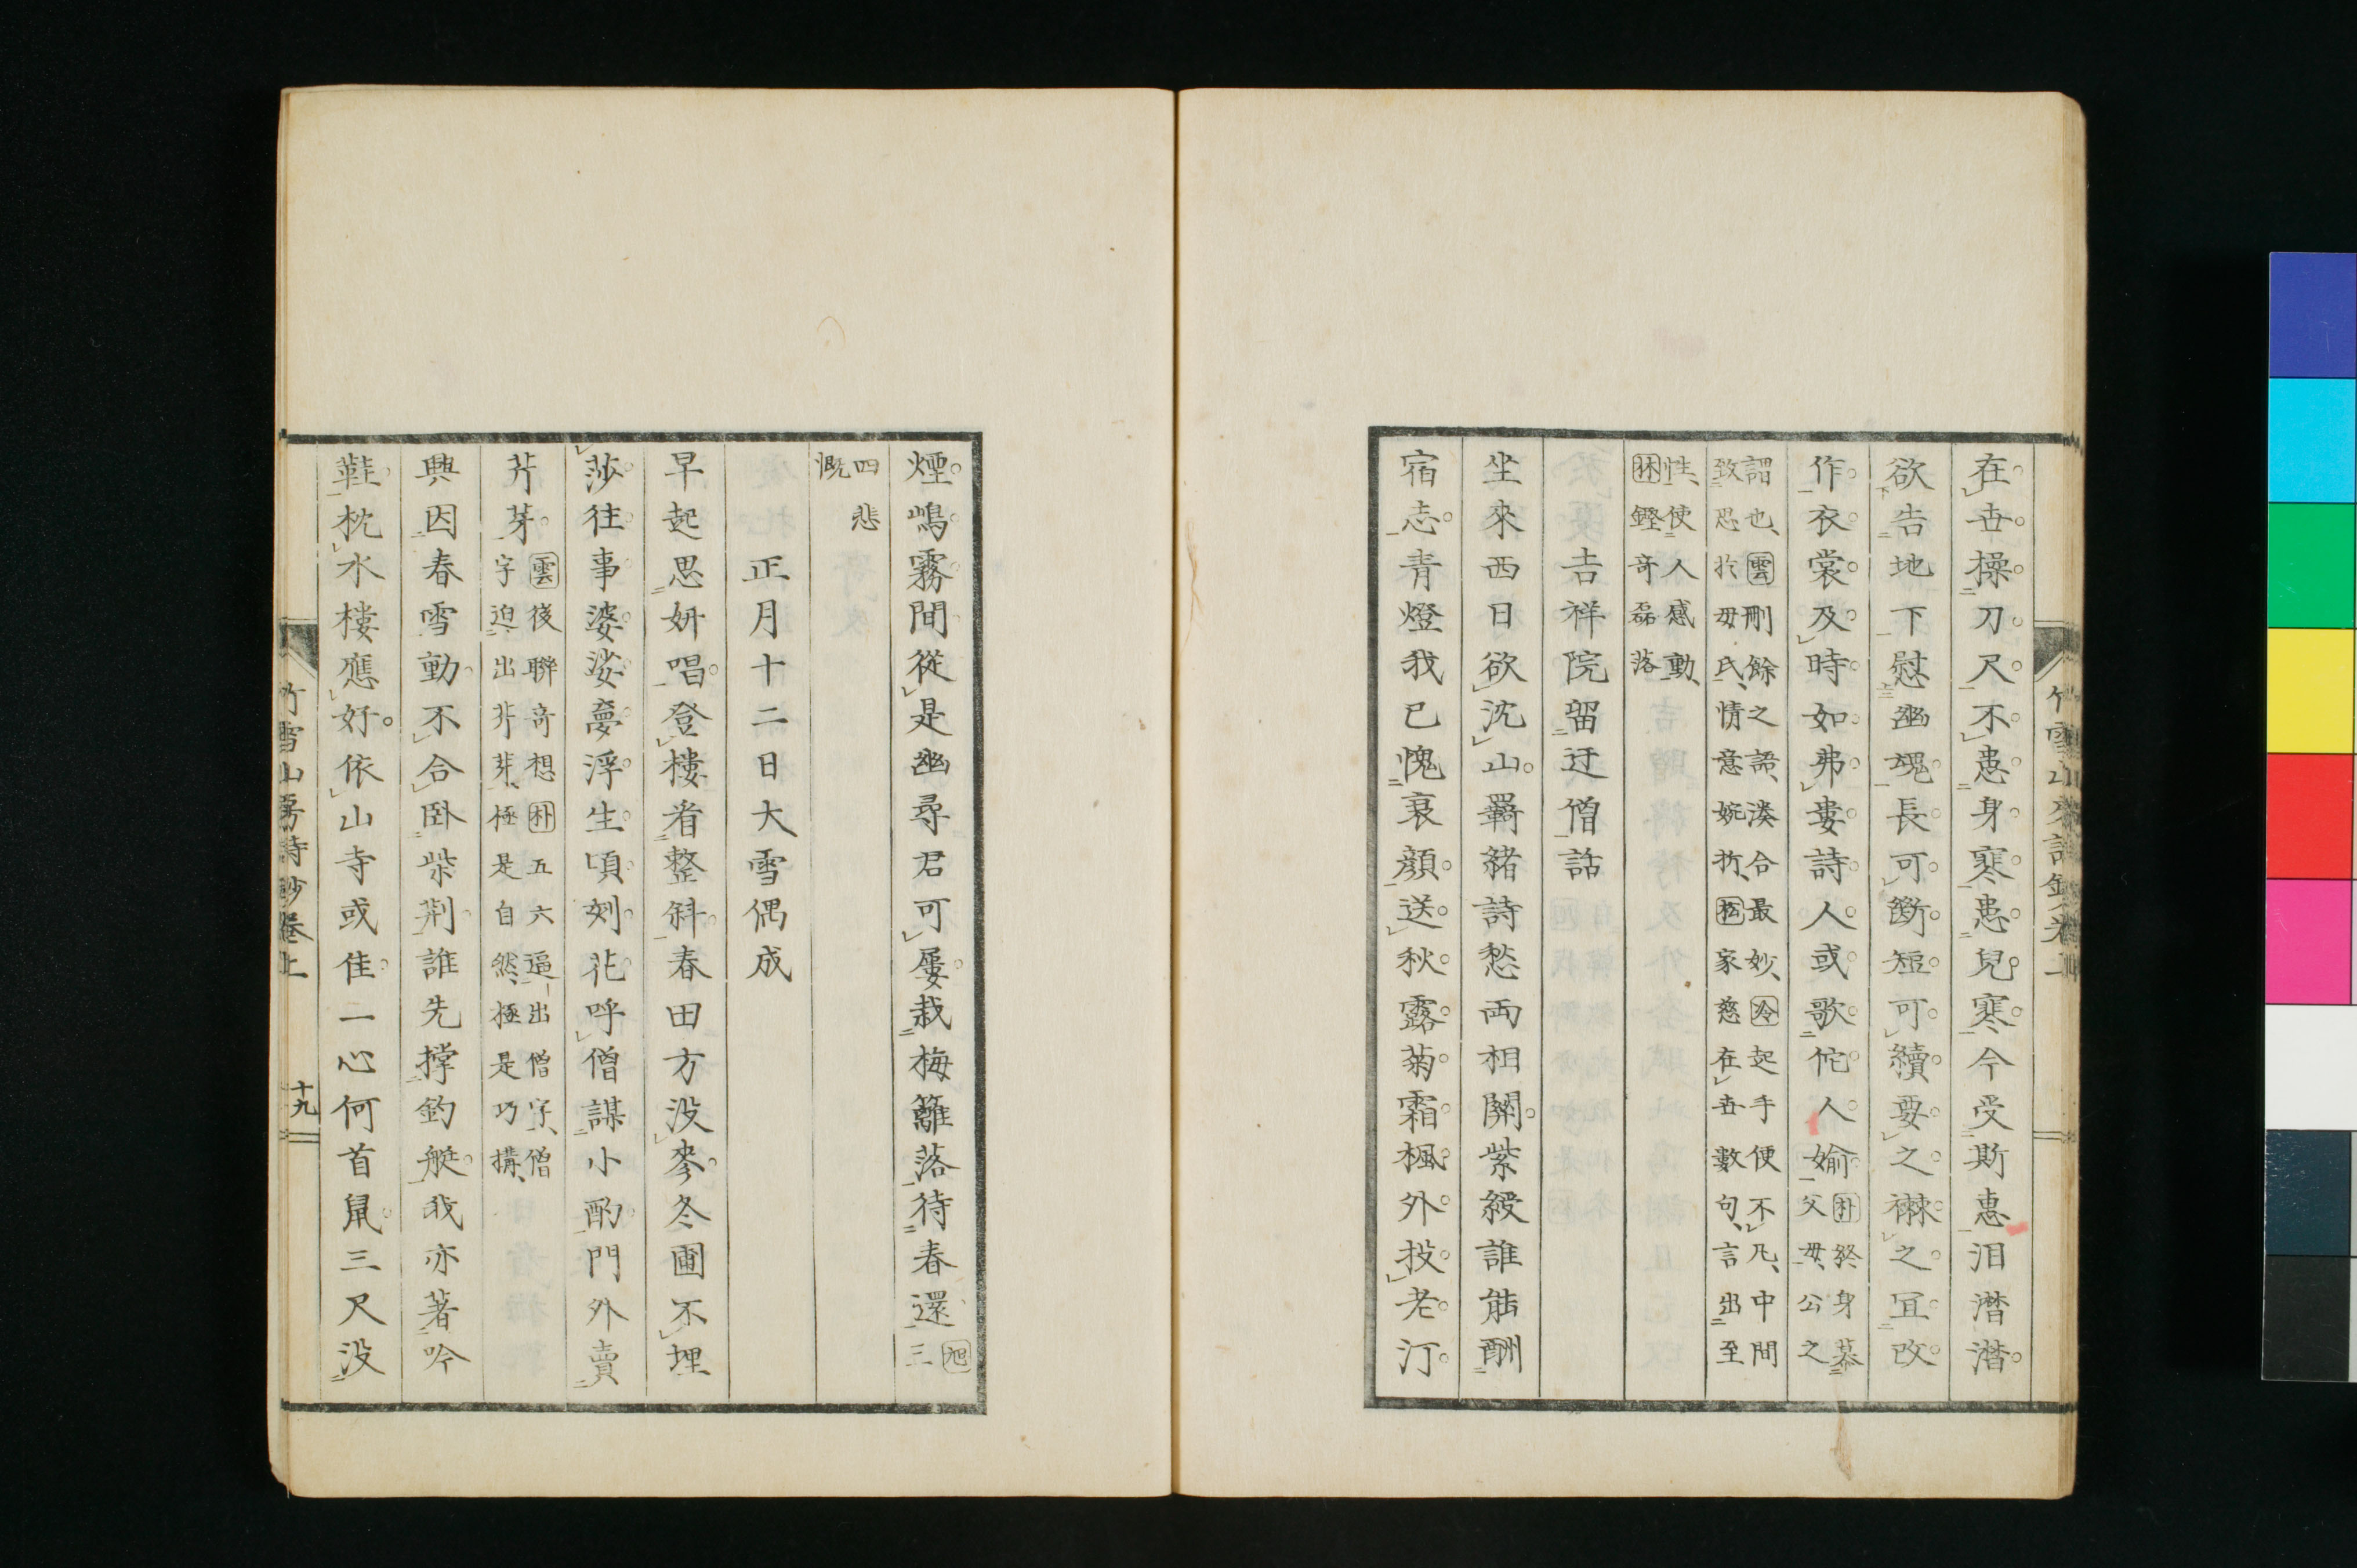 在世操刀尺不患身寒患兒寒今受斯惠泪潸潸
欲告地下慰幽魂長可斷短可續要之襋之宜改
作衣裳及時如弗婁詩人或歌佗人媮
朴終身慕父母公之
謂也雲刪餘之語湊合最妙冷起手便不凡中間
致思於母氏情意婉折松家慈在世數句言出至
性使人感動
林鏗奇磊落
吉祥院留迂僧話
坐來西日欲沈山羇緒詩愁両相關紫綬誰能酬
宿志青燈我已愧衰顔送秋露菊霜楓外投老汀
煙嶋霧間從是幽尋君可屢栽梅籬落待春還
旭三
四悲
慨
正月十二日大雪偶成
早起思妍唱登樓看整斜春田方没麥冬圃不埋
莎往事婆娑夢浮生頃刻花呼僧謀小酌門外賣
芥芽
雲後聯奇想朴五六逼出僧字僧
字迫出芥芽極是自然極是巧搆
興因春雪動不合臥柴荊誰先撑釣艇我亦著吟
鞋枕水樓應好依山寺或佳一心何首鼠三尺没
竹雪山房詩鈔卷上
十九